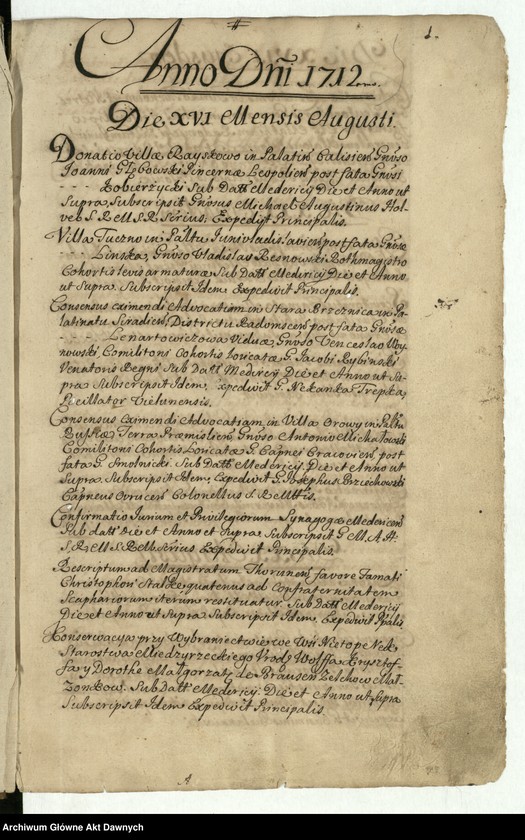 1.
Anno Dñi 1712
Die XVI Mensis Augusti.
Donatio Villæ Rayskowo in Palatin: Calisien: Gnoso
Joanni Głębowski Pincernæ Leopolien: post fata Gnosi
- - - - Kobierzycki Sub Datt: Medericij Die et Anno ut
Supra, Subscripsit Gnosus Michael Augustinus Hol-
vel S. R. M. S. R. Scrius. Expedijt Principalis.
Villa Tuczno in Paltu Juniuladislavien: post fata Gnosæ
- - - - Linska, Gnoso Vladislao Resnowski Rothmagistro
Cohortis levis armaturæ Sub Datt: Medericij Die et Anno
ut Supra. Subscripsit Idem Expedivit Principalis.
Consensus eximendi Advocatiam in Stara Brzeznica in Pa-
latinatu Siradien: Districtu Radomscen: post fata Gnosæ
- - - - Lenartowiczowa Viduæ, Gnoso Venceslao
nowski Comilitoni Cohortis Loricatæ G. Jacobi Rybinski
Venatoris Regni Sub Datt: Medericij Die et Anno ut Su-
pra Subscripsit Idem, expedivit G. Nekanka Trepka
Pocillator Vielunensis.
Consensus eximendi Advocatiam in Villa Orowy in Paltu
Russiæ Terra Præmislien: Gnoso Antonio Michałowski
Comilitoni Cohortis Loricatæ G. Capnei Cracovien: post
fata G. Smolnicki. Sub Datt: Medericij Die et Anno ut
Supra Subscripsit Idem, Expedivit G. Josephus Brzechowski
Capneus Owrucen: Colonellus S. R. Mttis.
Confirmatio Iurium et Privilegiorum Synagogæ Medericen:
Sub datt: Die et Anno et Supra Subscripsit G. M. A. H:
S. R. M. S. Rolls: Scrius Expedivit Principalis.
Rescriptum ad Magistratum Thorunen: favore Famati
Christophori quatenus ad Confraternitatem
Scaphariorum iterum restituatur. Sub Datt: Medericij
Die et Anno ut Supra Subscripsit Idem Expedivit Ppalis
Konserwacya przy Wybraniectwie we Wsi Nietopereck
Starostwa Miedzyrzeckiego Urodz: Wolffa Krysztof-
fa y Dorothe Małgorzaty de Brausen Małl
Zonkow. Sub Datt: Medericij. Die et Anno ut Supra
Subscripsit Idem Expedivit Principalis.
Archiwum Główne Akt Dawnych